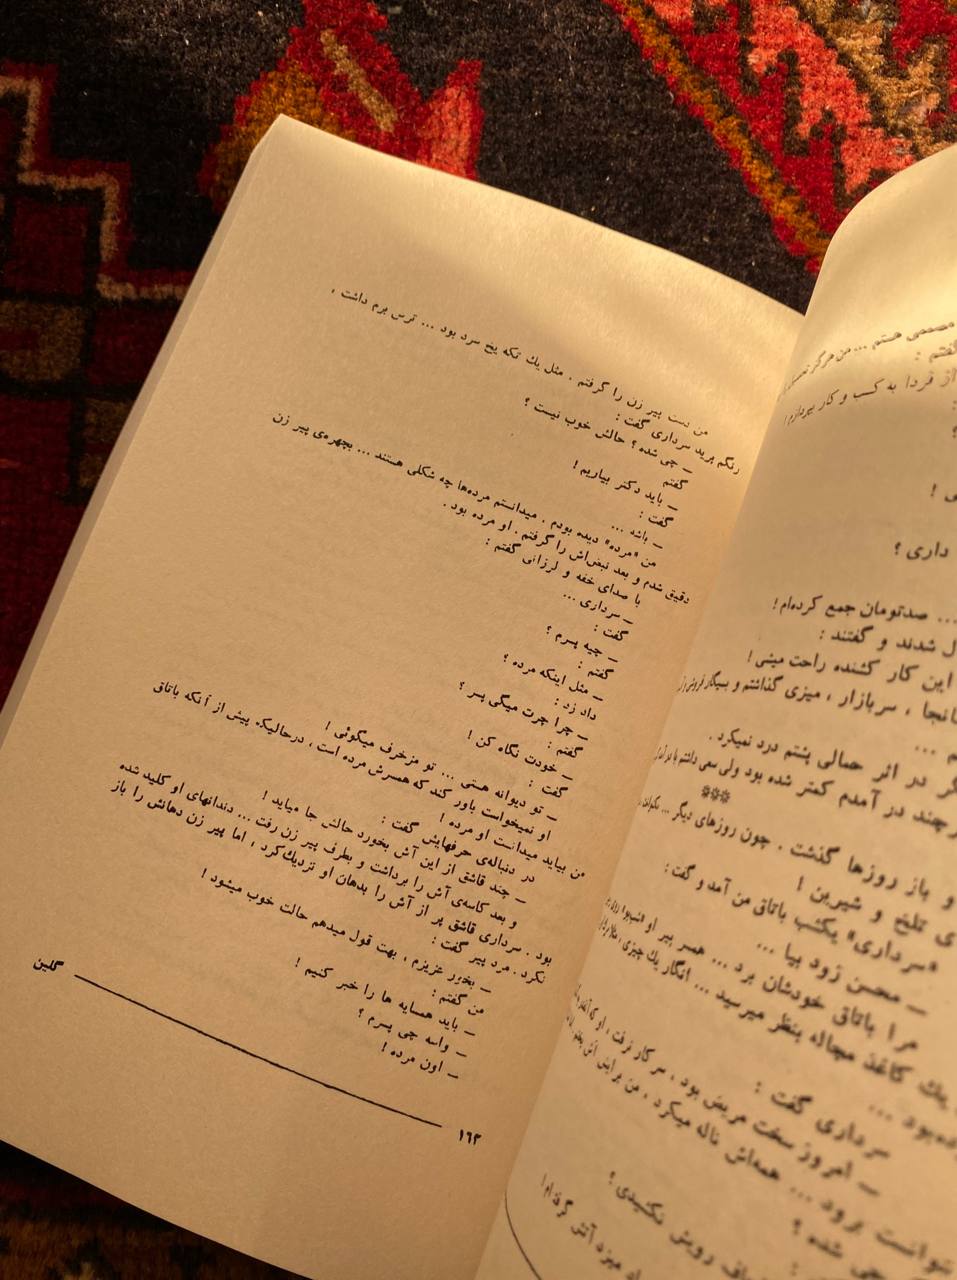 مصممی هستم ... من هرگز
گفتم :
از فردا به کسب و کار بپردازم !
داری ؟
... صدتومان جمع کرده‌ام !
شدند و گفتند :
این کار کشنده راحت میشی !
سربازار ، میزی گذاشتم و سیگار فروشی
در اثر حمالی پشتم درد نمیکرد .
در آمدم کمتر شده بود ولی سعی داشتم با
***
و باز روزها گذشت . چون روزهای دیگر ...
تلخ و شیرین !
«سرداری» یکشب باتاق من آمد و گفت :
ـ محسن زود بیا ...
مرا باتاق خودشان برد ... همسر پیر او
یك کاغذ مچاله بنظر میرسید ... انگار یك چیزی ،
سرداری گفت :
ـ امروز سخت مریض بود ، سر کار نرفت ، او که
برود ... همه‌اش ناله میکرد ، من برایش آش پختم ،
شده ؟
رویش نکشیدی ؟
میزد آتش گرفته‌ام !
من دست پیر زن را گرفتم . مثل یك تکه یخ سرد بود ... ترس برم داشت ،
رنگم پرید سرداری گفت :
ـ چی شده ؟ حالش خوب نیست ؟
گفتم
ـ باید دکتر بیاریم !
گفت :
ـ باشه ...
من «مرده» دیده بودم . میدانستم مرده‌ها چه شکلی هستند ... بچهره‌ی پیر زن
دقیق شدم و بعد نبض‌اش را گرفتم . او مرده بود .
با صدای خفه و لرزانی گفتم :
ـ سرداری ...
گفت :
ـ چیه پسرم ؟
گفتم :
ـ مثل اینکه مرده ؟
داد زد :
ـ چرا چرت میگی پسر ؟
گفتم :
ـ خودت نگاه کن !
گفت :
ـ تو دیوانه هستی ... تو مزخرف میگوئی !
او نمیخواست باور کند که همسرش مرده است ، درحالیکه پیش از آنکه باتاق
من بیاید میدانست او مرده !
در دنباله‌ی حرفهایش گفت :
ـ چند قاشق از این آش بخورد حالش جا میاید !
و بعد کاسه‌ی آش را برداشت و بطرف پیر زن رفت ... دندانهای او کلید شده
بود . سرداری قاشق پر از آش را بدهان او نزدیك کرد ، اما پیر زن دهانش را باز
نکرد . مرد پیر گفت :
ـ بخور عزیزم ، بهت قول میدهم حالت خوب میشود !
من گفتم :
ـ باید همسایه ها را خبر کنیم !
ـ واسه چی پسرم ؟
ـ اون مرده !
۱۶۲
گلین